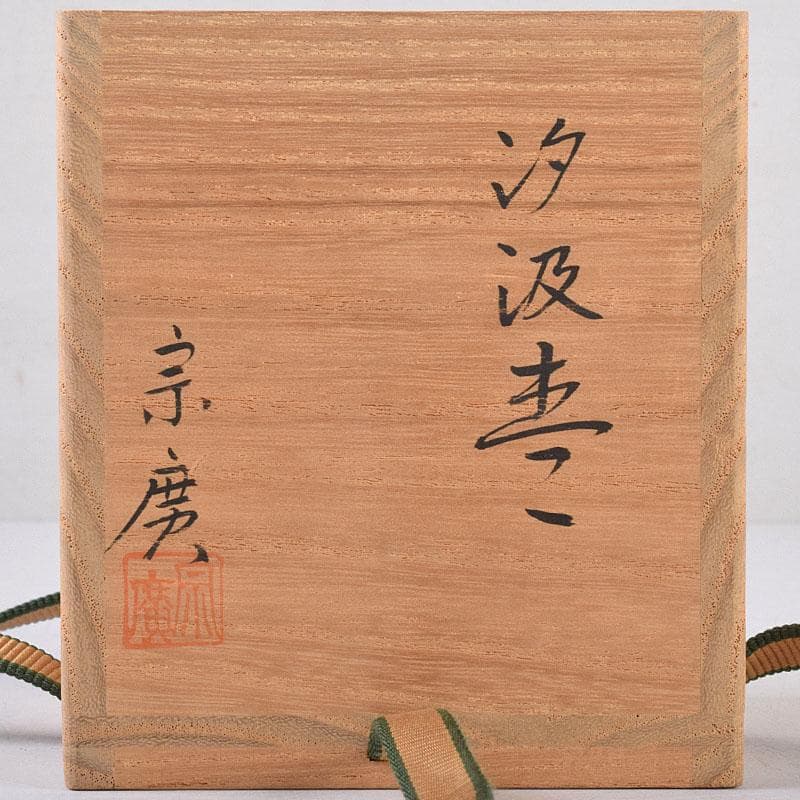 汐汲棗
宗廣
宗廣